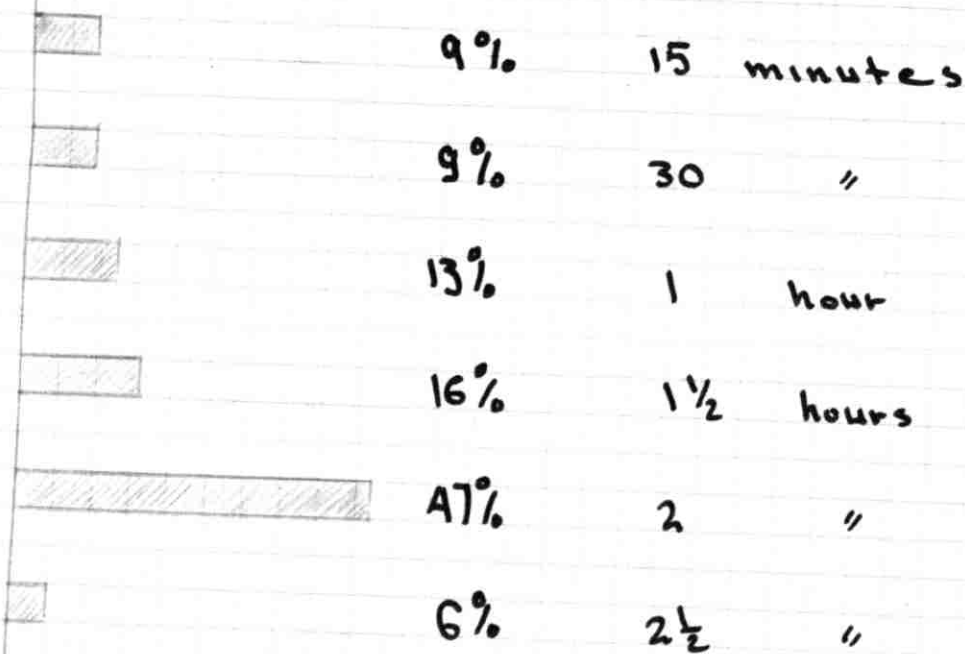 9% 15 minutes
9% 30 "
13% 1 hour
16% 1½ hours
47% 2 "
6% 2½ "